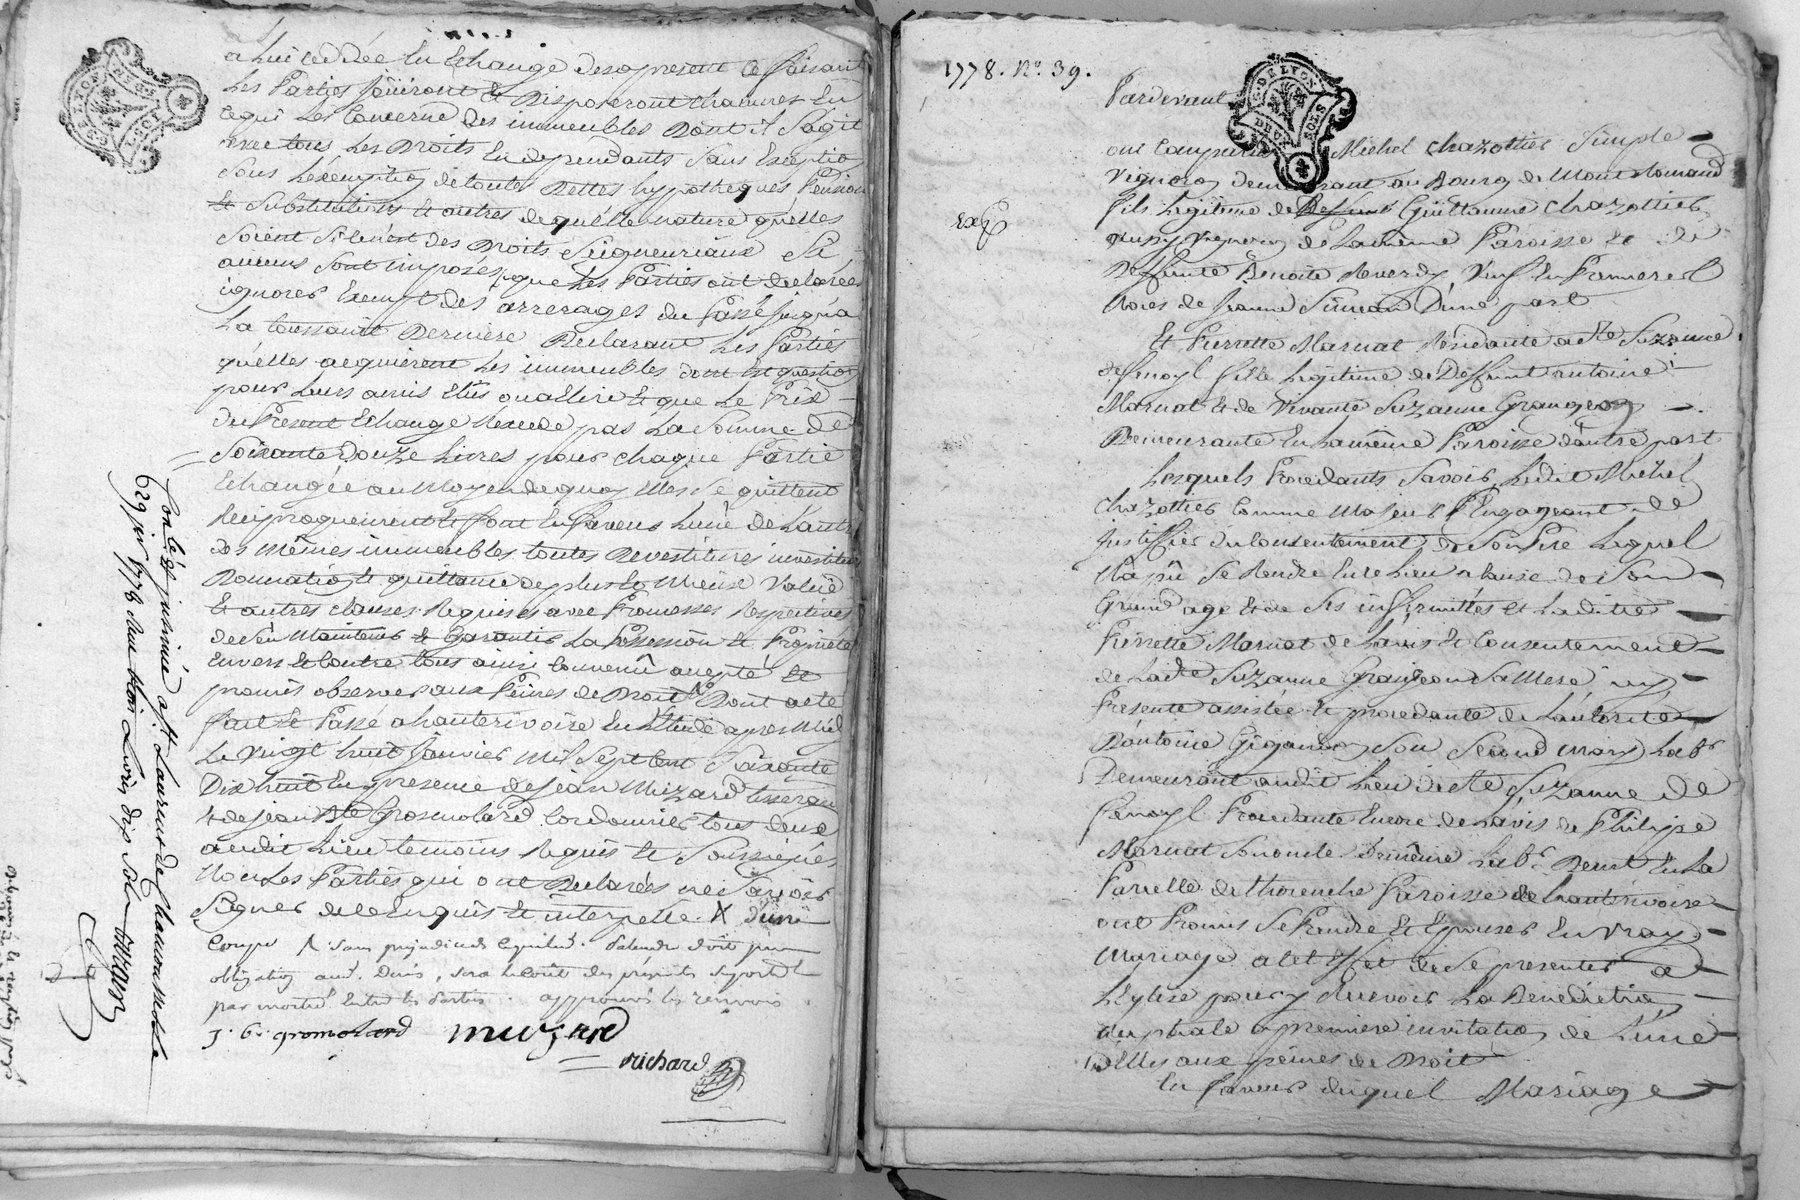 a lui ceddée en Echange desapresent Ce faisant
les Parties Joüiront et Disposeront chacunes En
cequi les Concerne des immeubles Dont il Sagit
avec tous Les Droits En dependants Sans Exception
Sous L'exemption de toutes Dettes hypotheques Pension
et Substitutions et autres de quélle nature quélles
soient Si cenést des Droits Seigneuriaux Si
aucuns Sont imposés que Les Parties ont declarées
ignorer Exempt des arrerages du Passé jusqu'a
La toussaint Derniere Declarant Les Parties
quélles acquierent Les immeubles dont est question
pour Leurs amis élus ou a Elire et que Le Prix
du Present Echange Nexcede pas La Somme de
Soixante Douze Livres pour chaque Partie
Echangée au Moyen de quoy Elles Se quittent
Reciproquement et font En faveur Lune de Lautre
des Mêmes immeubles toutes Devestitures investitures
Donnation et quittance de plus ou Moins Valüe
et autres clauses Requises avec Promesses Respectives
de Sén Maintenir et Garantir La Possession et Proprieté
Envers et Contre tous ainsi Convenu accepté et
promis observer aux Peines de Droit Dont acte
fait et Passé a hauterivoire En L'Etude apres Midy
Le Vingt huit Janvier Mil Sept Cent Soixante
Dix huit En presence de Jean Muzard tisseran
et de Jean Bte Gromolard Cordonnier tous deux
audit Lieu temoins Requis et Soussignés
Non Les Parties qui ont Declarées ne Savoir
Signer de ce Enquis et interpellé
J. B. gromolard muzard
richard
Controlé et insinué a St Laurent de Chamousset le
29 jer 1778 Reçu trois Livres dix sols
1778. No. 39.
Pardevant
ont Comparu Michel Chazottier Simple
Vigneron demeurant au Bourg de Mont Romand
fils Legitime de Guillaume Chazottier
aussy Vigneron de Lameme Paroisse et de
deffunte Benoite Reverdy Veuf En Premieres
Noces de Jeanne Simean Dune part
Et Pierrette Marnat Residante a Ste Suzanne
de fenoyl fille Legitime de Deffunt antoine
Marnat et de Vivante Suzanne Grangeon
Demeurante En La même Paroisse dautre part
Lesquels Procedants Savoir Ledit Michel
Chazottier Comme Majeur et S'Engageant de
Justiffier du Consentement de Son Pere Lequel
Na pû Se Rendre En ce Lieu a Cause de Son
Grand age et de Ses infirmittés et Ladite
Pierrette Marnat de Lavis et Consentement
de Ladte Suzanne Grangeon Sa Mere icy
Presente assistée et procedante de Lautorité
D'antoine Giganon Son Second Mary Labr
Demeurant audit Lieu de Ste Suzanne de
fenoyl Procedante Encore de Lavis de Philippe
Marnat Son oncle Labr Demt En La
Parcelle de thorenche Paroisse de hauterivoire
ont Promis Se Prendre et Epouser En Vray
Mariage a cet Effet de Se presenter a
L'eglise pour y Recevoir La Benediction
Nuptiale a premiere invitation de L'une
délles aux peines de Droit
En faveur duquel Mariage